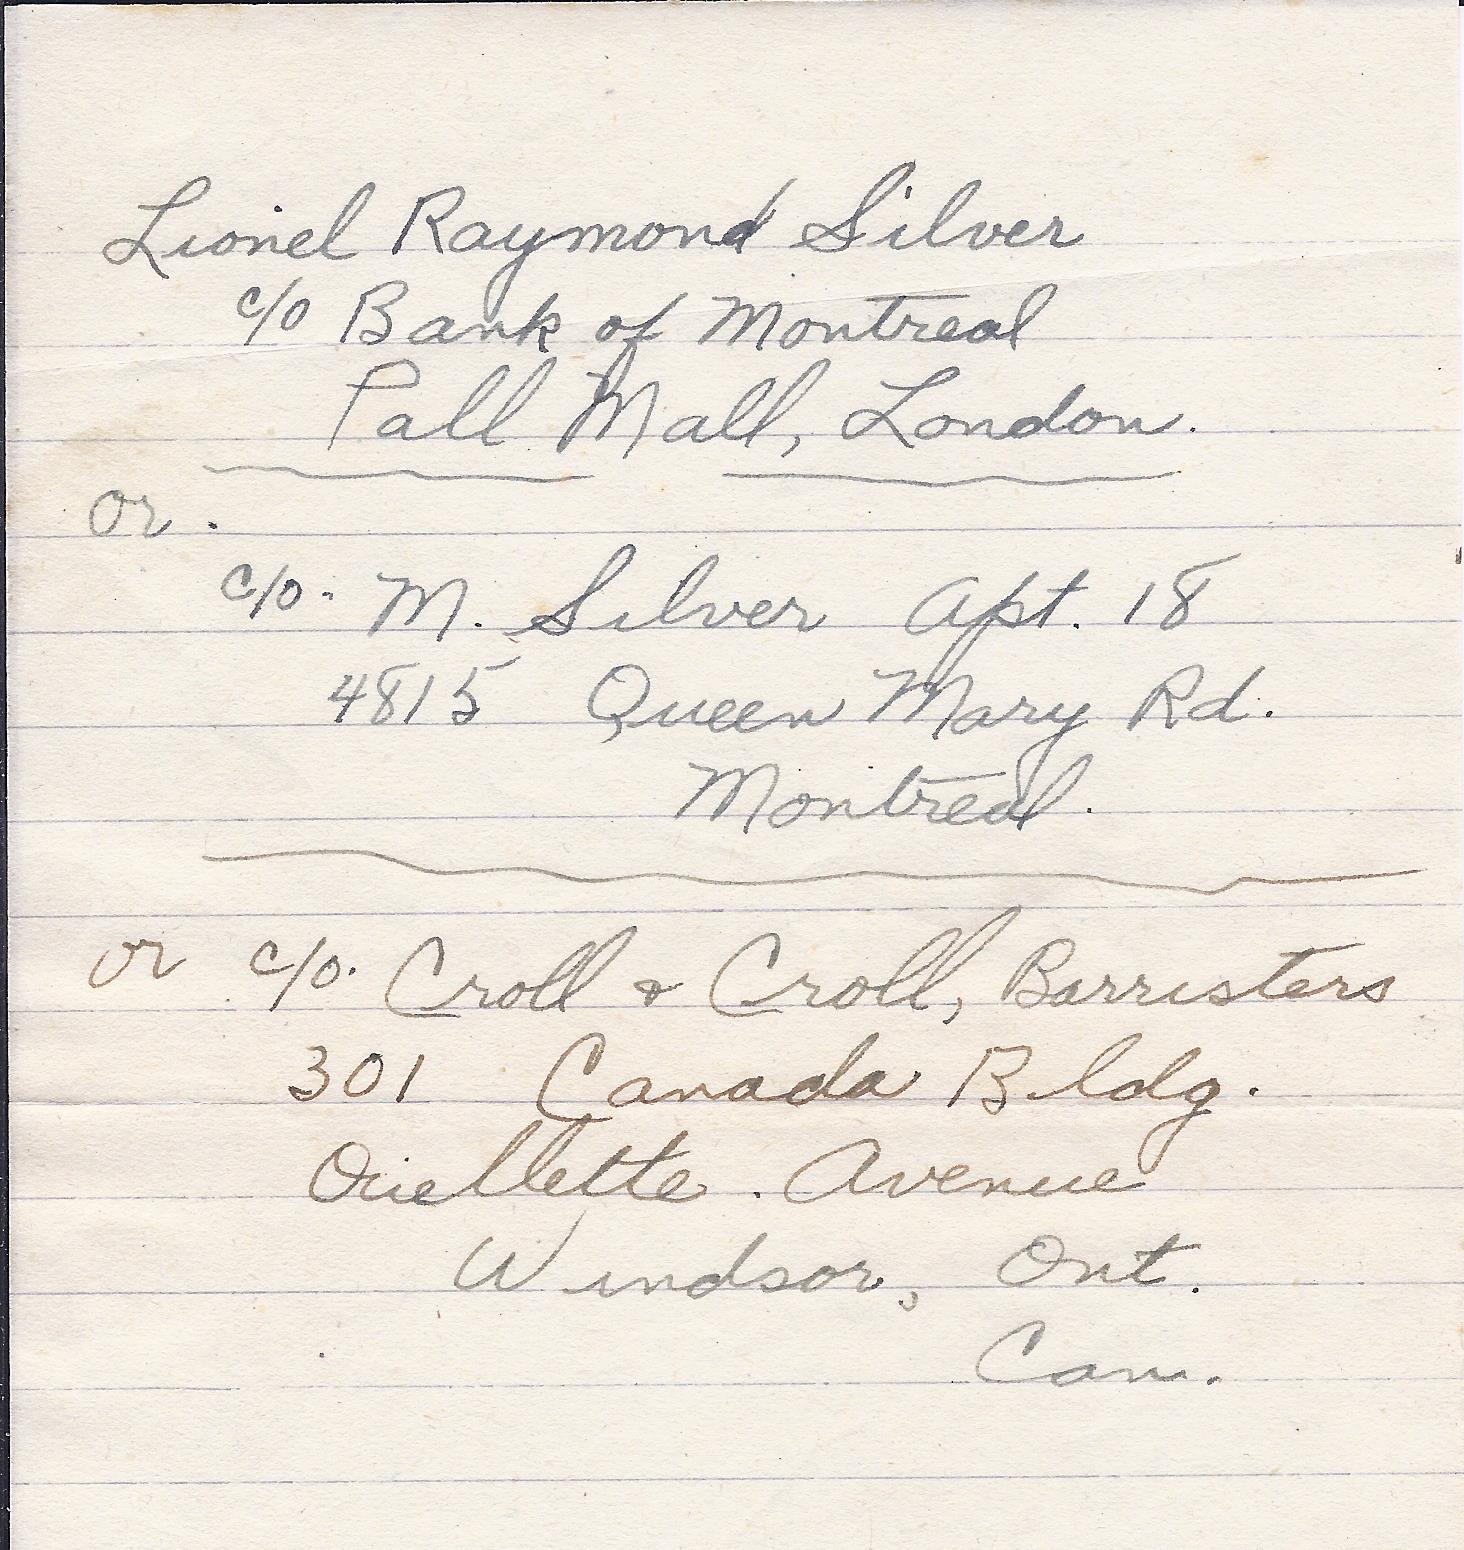 Lionel Raymond Silver
c/o Bank of Montreal
Pall Mall, London.
or.
c/o. M. Silver Apt. 18
4815 Queen Mary Rd.
Montreal.
or c/o. Croll & Croll, Barristers
301 Canada Bldg.
Ouellette. Avenue
Windsor, Ont.
Can.